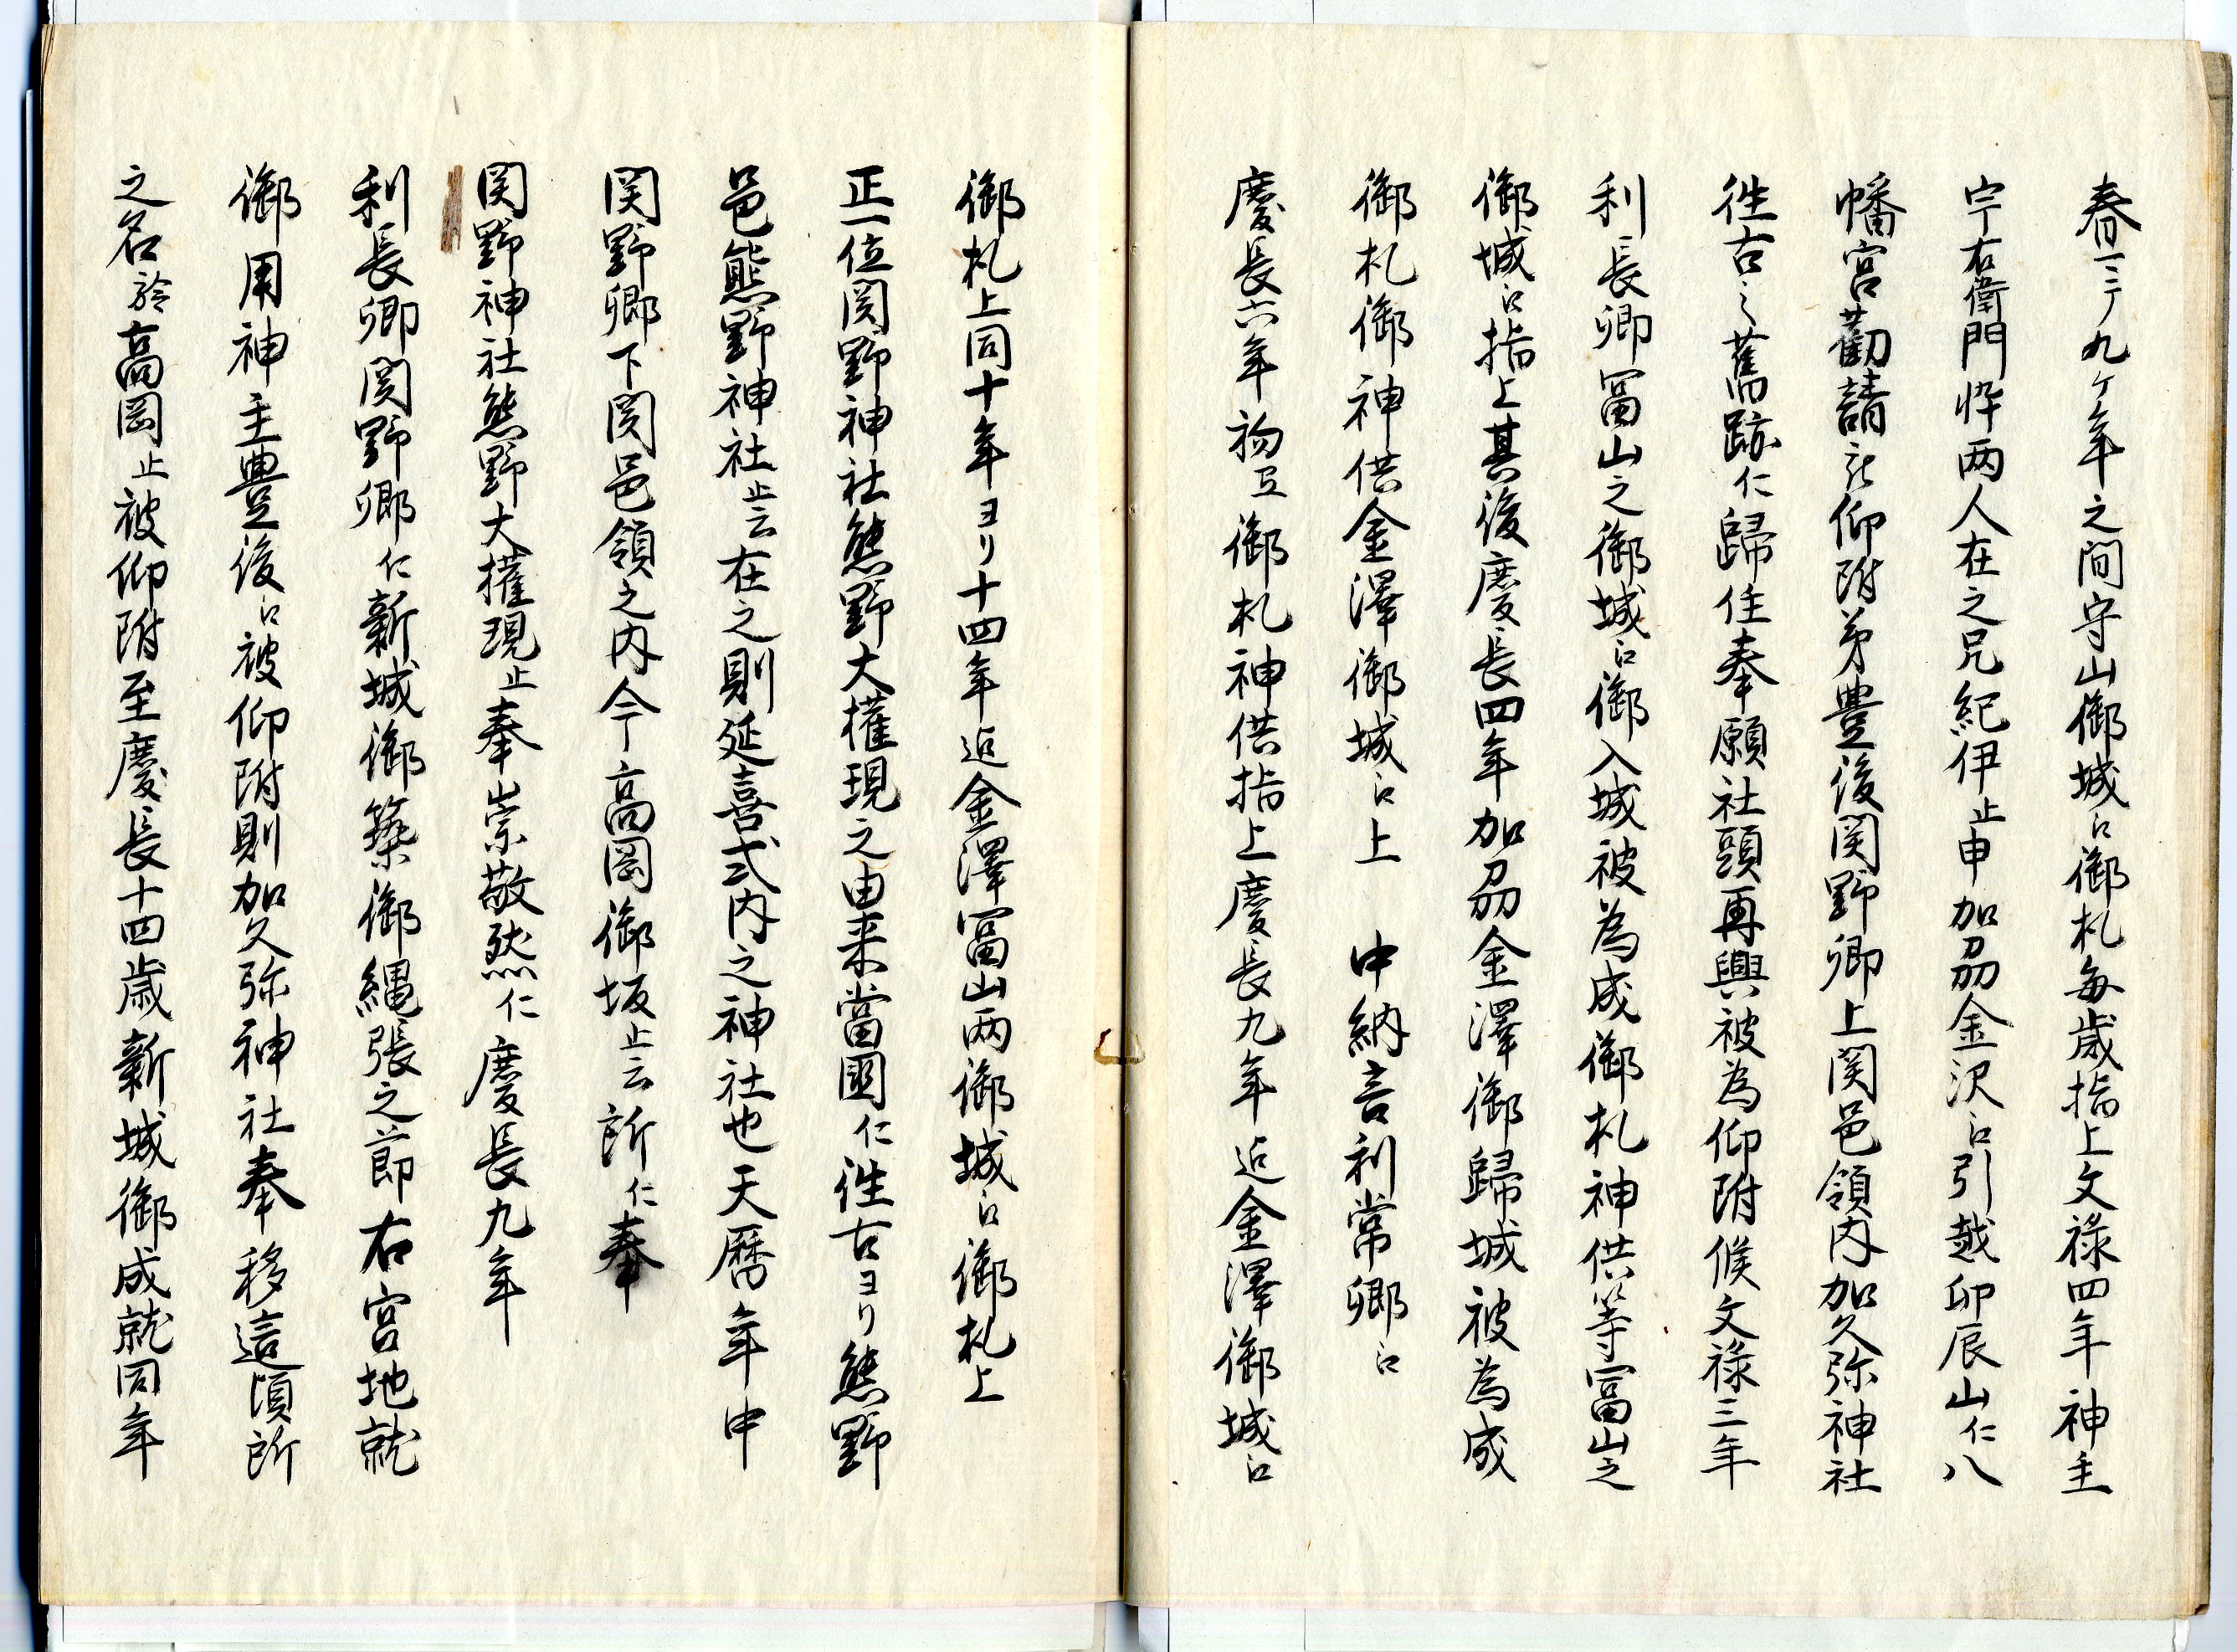 春迠九ヶ年之間守山御城江御札毎歳指上文禄四年神主
宇右衛門忰两人在之兄紀伊止申加刕金沢江引越卯辰山仁八
幡宮勸請被仰附弟豊後関野卿上関邑領内加久弥神社
徃古之舊跡仁歸住奉願社頭再興被為仰附候文禄三年
利長卿冨山之御城江御入城被為成御札神供等富山之
御城江指上其後慶長四年加刕金澤御歸城被為成
御札御神供金澤御城江上　中納言利常卿江
慶長六年初而御札神供指上慶長九年迠金澤御城江
御札上同十年ヨリ十四年迠金澤冨山两御城江御札上
正一位関野神社熊野大權現之由来當國仁徃古ヨリ熊野
邑熊野神社止云在之則延喜式内之神社也天暦年中
関野郷下関邑領之内今高岡御坂止云所仁奉
関野神社熊野大權現止奉崇敬然仁慶長九年
利長卿関野卿仁新城御築御縄張之節右宮地就
御用神主豊後江被仰附則加久弥神社奉移這頃所
之名於高岡止被仰附至慶長十四歳新城御成就同年